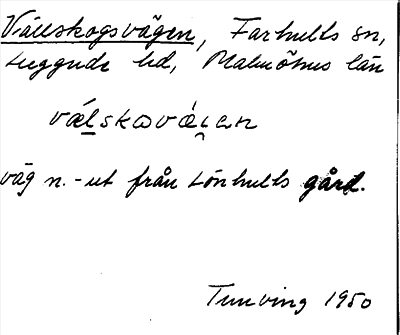 Vällskogsvägen, Farhults sn,
Luggude hd, Malmöhus län
vä́lskɷvä́i̯en
väg n.-ut från Lönhults gård.
Tunving 1950